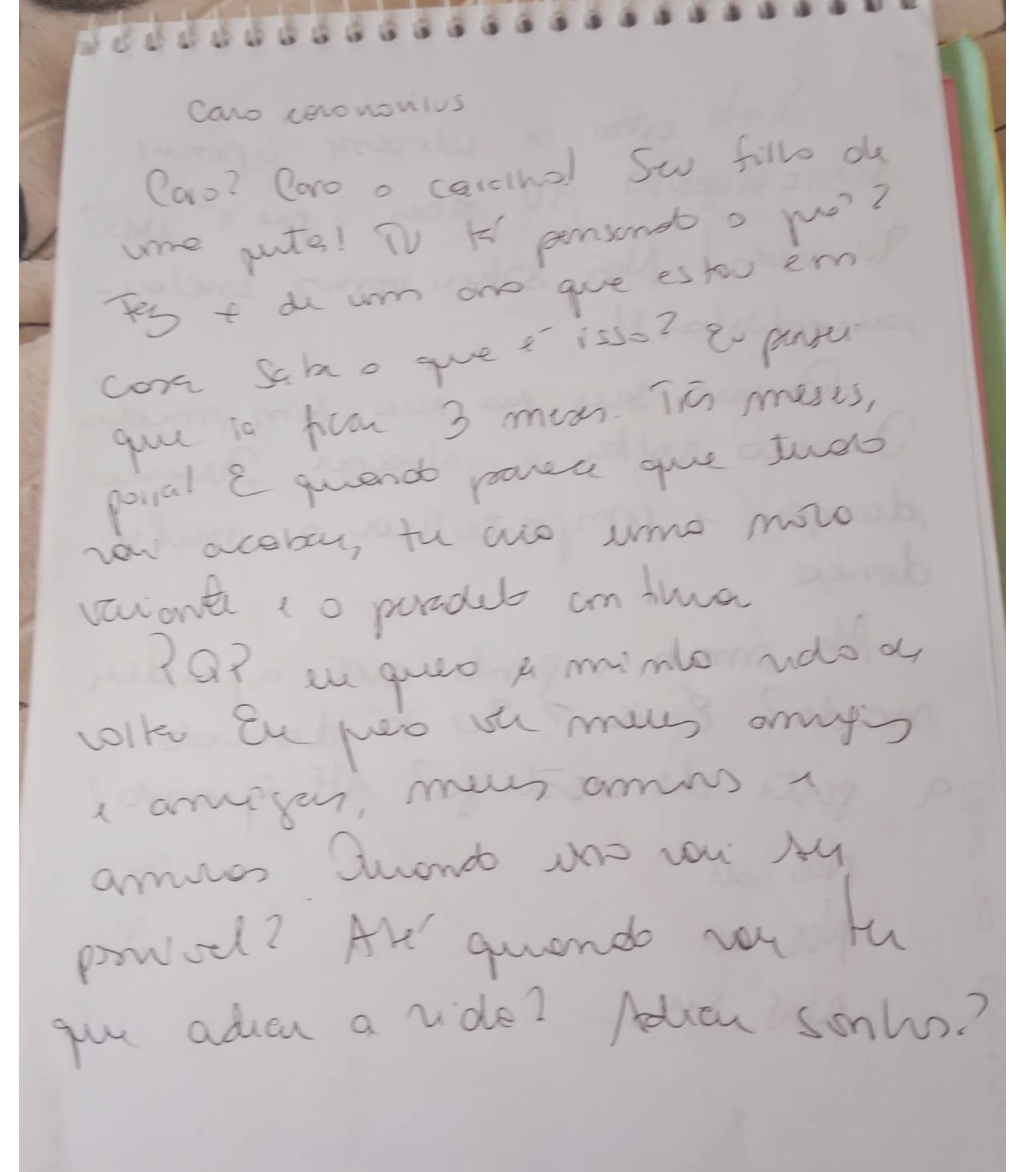 Caro coronovirus
Caro? Caro o caralho! Seu filho de
uma puta! Tu tá pensando o quê?
Fez + de um ano que estou em
casa Sabe o que é isso? Eu pensei
que ia ficar 3 meses. Três meses,
porra! E quando parece que tudo
vai acabar, tu cria uma nova
variante e o pesadelo continua
PQP eu quero a minha vida de
volta Eu quero ver meus amigos
e amigas, meus amores e
amoras Quando isso vai ser
possível? Até quando vou ter
que adiar a vida? Adiar sonhos?